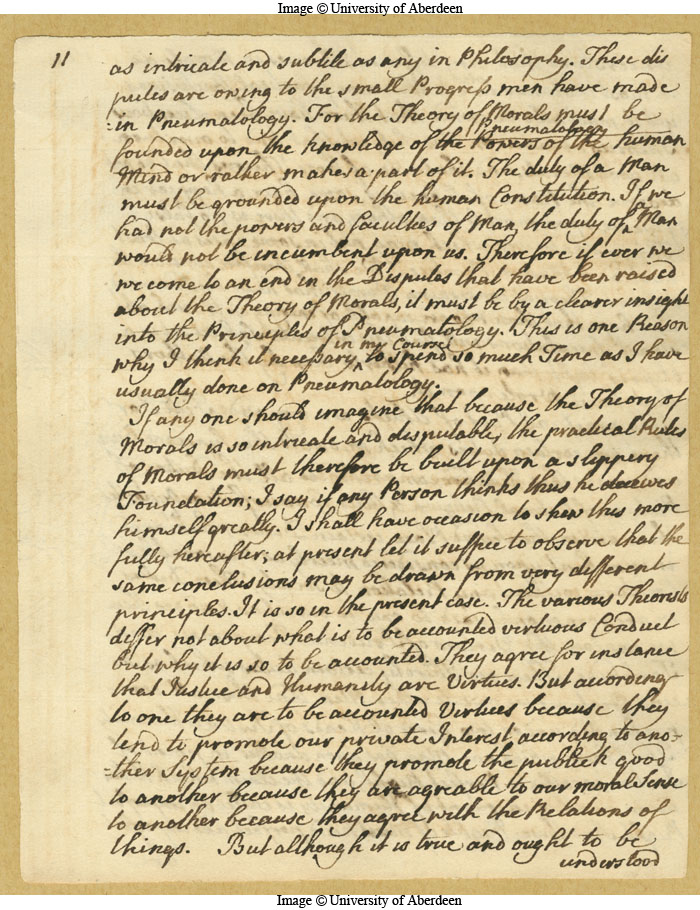 Image © University of Aberdeen
11
as intricate and subtile as any in Philosophy. These dis
putes are owing to the small Progress men have made
=in Pneumatology. For the Theory of Morals must be
Pneumatology
founded upon the knowledge of the Powers of the human
Mind or rather makes a part of it. The duty of a Man
must be grounded upon the human Constitution. If we
had not the powers and faculties of Man, the duty of Man
would not be incumbent upon us. Therefore if ever we
we come to an end in the Disputes that have been raised
about the Theory of Morals, it must be by a clearer insight
into the Principles of Pneumatology. This is one Reason
in my Course
why I think it necessary to spend so much Time as I have
usually done on Pneumatology.
If any one should imagine that because the Theory of
Morals is so intricate and disputable, the practical Rules
of Morals must therefore be built upon a slippery
Foundation; I say if any Person thinks thus he deceives
himself greatly. I shall have occasion to shew this more
fully hereafter; at present let it suffice to observe that the
same conclusions may be drawn from very different
principles. It is so in the present case. The various Theorists
differ not about what is to be accounted virtuous Conduct
but why it is so to be accounted. They agree for instance
that Justice and Humanity are Virtues. But according
to one they are to be accounted Virtues because they
tend to promote our private Interest according to ano=
=ther System because they promote the publick good
to another because they are agreable to our moral Sense
to another because they agree with the Relations of
things. But although it is true and ought to be
understood
Image © University of Aberdeen